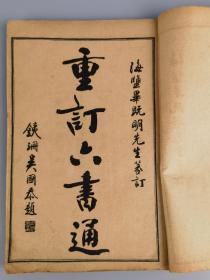 海鹽畢既明先生篆訂
重訂六書通
鐵珊吳國泰題